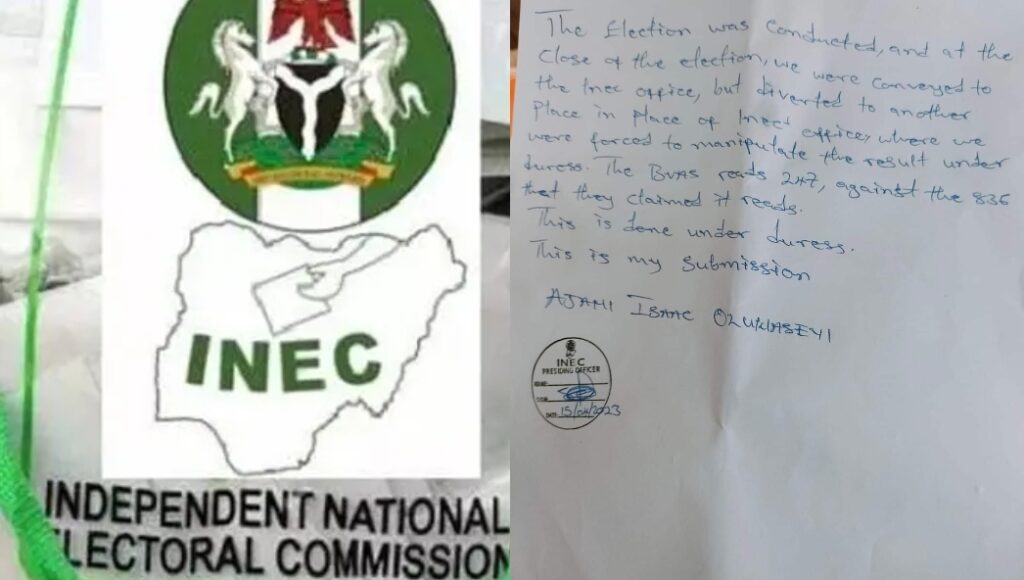 INEC
INDEPENDENT NATIONAL
ELECTORAL COMMISSION
The Election was conducted, and at the
close of the election, we were conveyed to
the Inec office, but diverted to another
place in place of Inec office, where we
were forced to manipulate the result under
duress. The Bvas reads 247, against the 836
that they claimed it reads.
This is done under duress.
This is my submission
AJAHI ISAAC OLUWASEYI
INEC
PRESIDING OFFICER
DATE: 15/04/2023